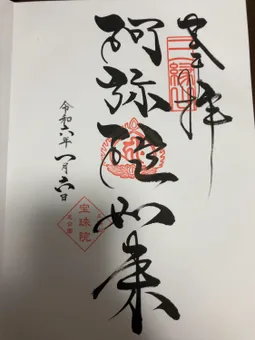 奉拝
三縁山
阿弥陀如来
令和六年一月六日
宝珠院